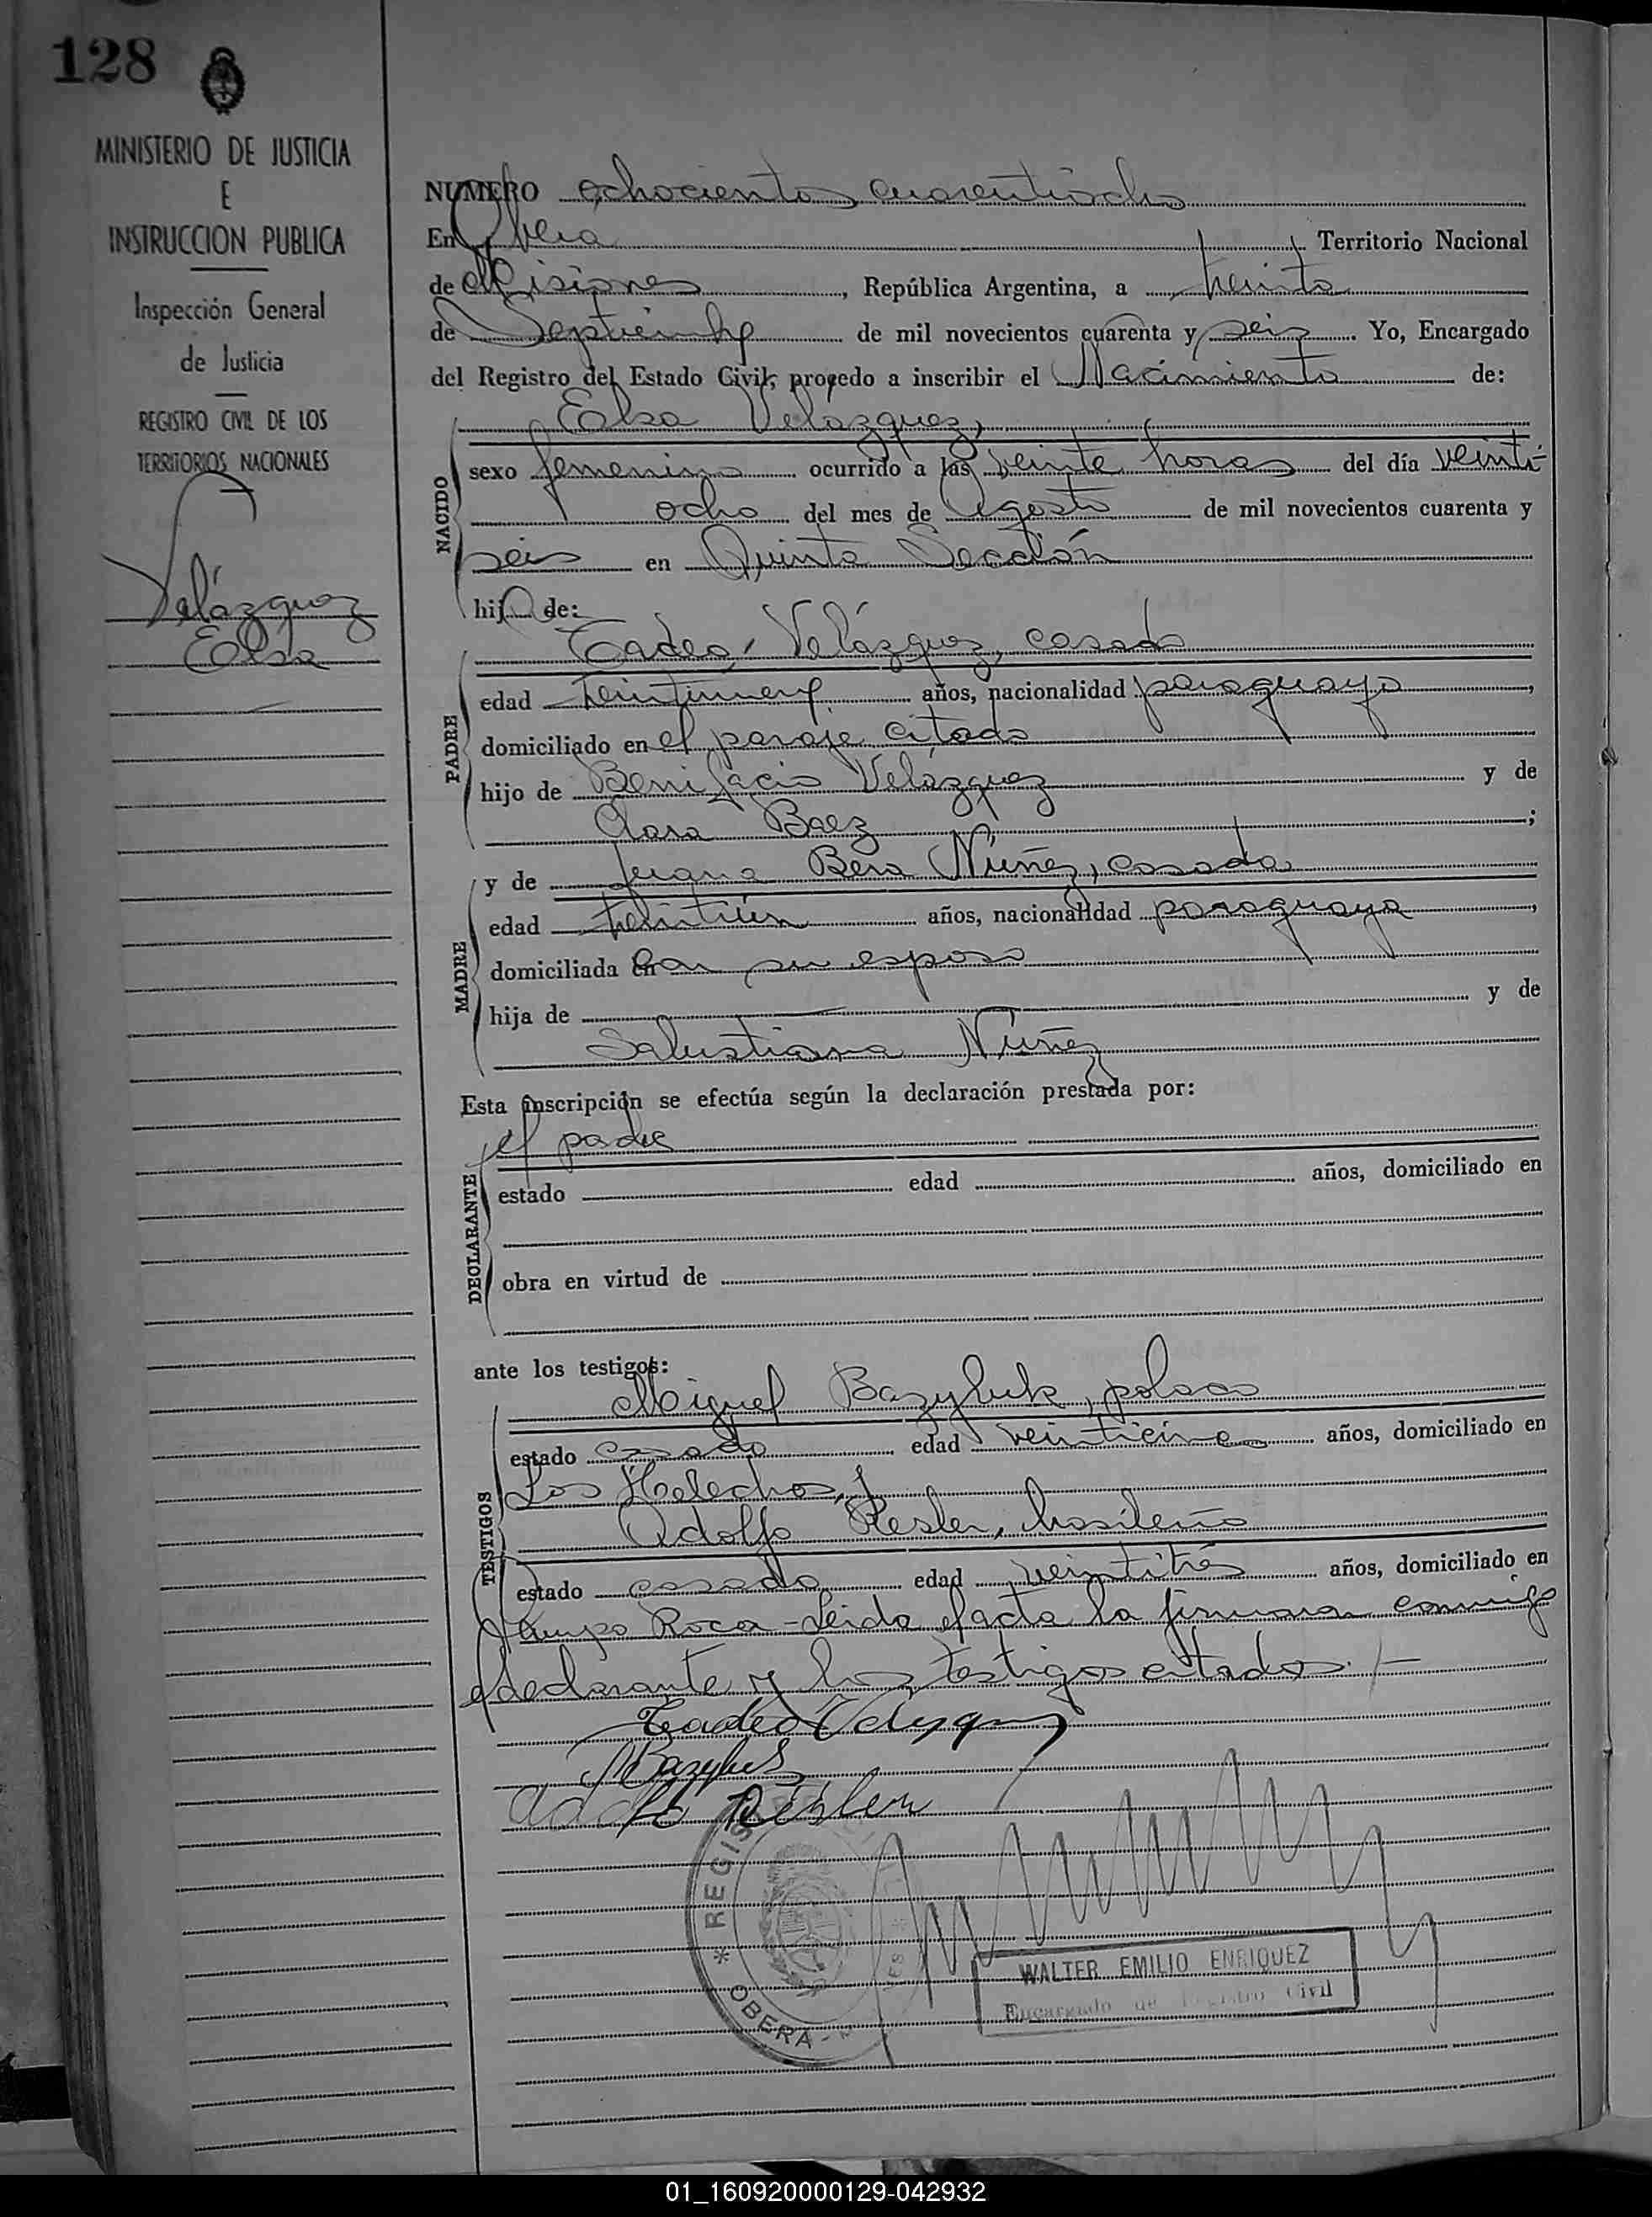 128
MINISTERIO DE JUSTICIA
E
INSTRUCCION PUBLICA
Inspección General
de Justicia
REGISTRO CIVIL DE LOS
TERRITORIOS NACIONALES
Velázquez
Elsa
NUMERO ochocientos cuarentiocho
En Oberá Territorio Nacional
de Misiones, República Argentina, a treinta
de Septiembre de mil novecientos cuarenta y seis. Yo, Encargado
del Registro del Estado Civil, procedo a inscribir el Nacimiento de:
Elsa Velázquez,
NACIDO
sexo femenino ocurrido a las veinte horas del día veinti-
ocho del mes de Agosto de mil novecientos cuarenta y
seis en Quinta Sección
hija de:
Tadeo Velázquez, casado
PADRE
edad treintinueve años, nacionalidad paraguayo,
domiciliado en el paraje citado
hijo de Bonifacio Velázquez y de
Clara Baez;
y de Juana Bera Núñez, casada
MADRE
edad treintiún años, nacionalidad paraguaya,
domiciliada con su esposo
hija de y de
Salustiana Núñez
Esta inscripción se efectúa según la declaración prestada por:
el padre
DECLARANTE
estado edad años, domiciliado en
obra en virtud de
ante los testigos:
Miguel Bazyluk, polaco
TESTIGOS
estado casado edad años, domiciliado en
Los Helechos, y
Adolfo Resler, brasileño
estado casado edad veintitrés años, domiciliado en
Campo Roca - Leída el acta la firman conmigo
el declarante y los testigos citados.-
Tadeo Velazquez
M Bazyluk
Adolfo Resler
REGIS
OBERA
WALTER EMILIO ENRIQUEZ
Encargado de Registro Civil
01_160920000129-042932